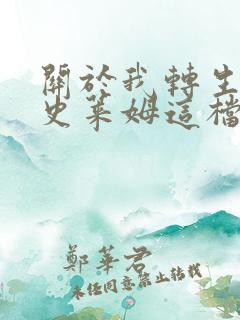 關於我轉生
史萊姆這檔
鄭華君
未經同意禁止轉載